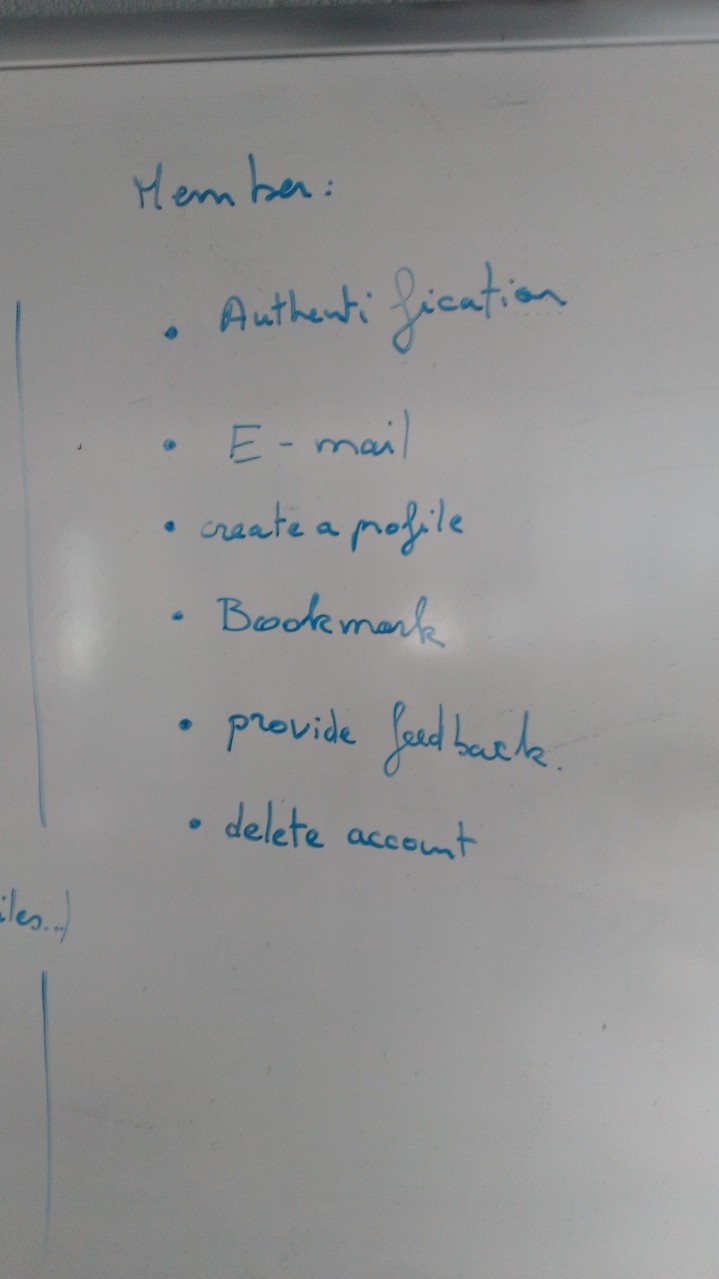 Member:
• Authentification
• E-mail
• create a profile
• Bookmark
• provide feedback.
• delete account
iles...)